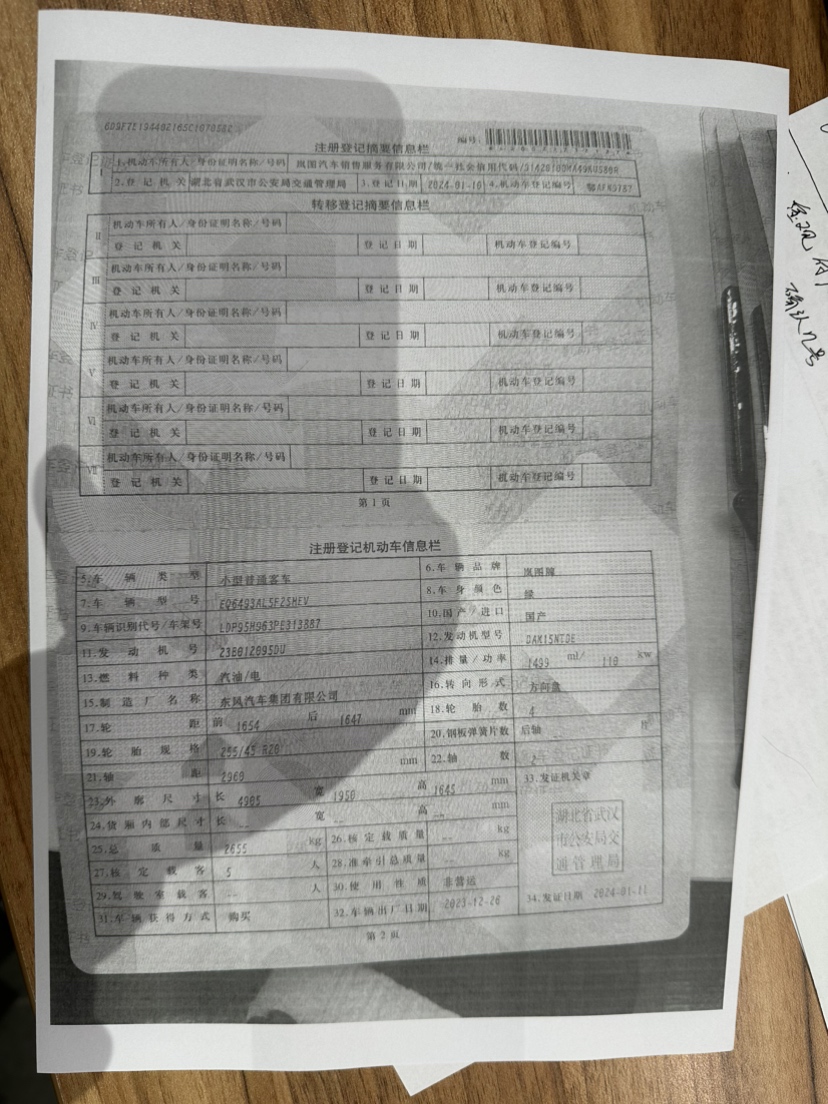 注册登记摘要信息栏
编号:
I 1.机动车所有人/身份证明名称/号码 岚图汽车销售服务有限公司/统一社会信用代码/
2.登记机关 湖北省武汉市公安局交通管理局 3.登记日期 2024-01-10 4.机动车登记编号
转移登记摘要信息栏
II 机动车所有人/身份证明名称/号码
登记机关 登记日期 机动车登记编号
III 机动车所有人/身份证明名称/号码
登记机关 登记日期 机动车登记编号
IV 机动车所有人/身份证明名称/号码
登记机关 登记日期 机动车登记编号
V 机动车所有人/身份证明名称/号码
登记机关 登记日期 机动车登记编号
VI 机动车所有人/身份证明名称/号码
登记机关 登记日期 机动车登记编号
VII 机动车所有人/身份证明名称/号码
登记机关 登记日期 机动车登记编号
第1页
注册登记机动车信息栏
5.车辆类型 小型普通客车 6.车辆品牌 岚图牌
7.车辆型号 8.车身颜色 绿
9.车辆识别代号/车架号 10.国产/进口 国产
11.发动机号 12.发动机型号 DAM15NTDE
13.燃料种类 汽油/电 14.排量/功率 1499 ml/ 110 kw
15.制造厂名称 东风汽车集团有限公司 16.转向形式 方向盘
17.轮距 前 1654 后 1647 mm 18.轮胎数 4
19.轮胎规格 255/45 R20 20.钢板弹簧片数 后轴
21.轴距 2969 mm 22.轴数 2
23.外廓尺寸 长 4905 宽 1950 高 1645 mm 33.发证机关章
24.货厢内部尺寸 长 -- 宽 -- 高 -- mm
湖北省武汉
市公安局交
通管理局
25.总质量 2655 kg 26.核定载质量 -- kg
27.核定载客 5 人 28.准牵引总质量 -- kg
29.驾驶室载客 -- 人 30.使用性质 非营运
31.车辆获得方式 购买 32.车辆出厂日期 2023-12-26 34.发证日期 2024-01-11
第2页